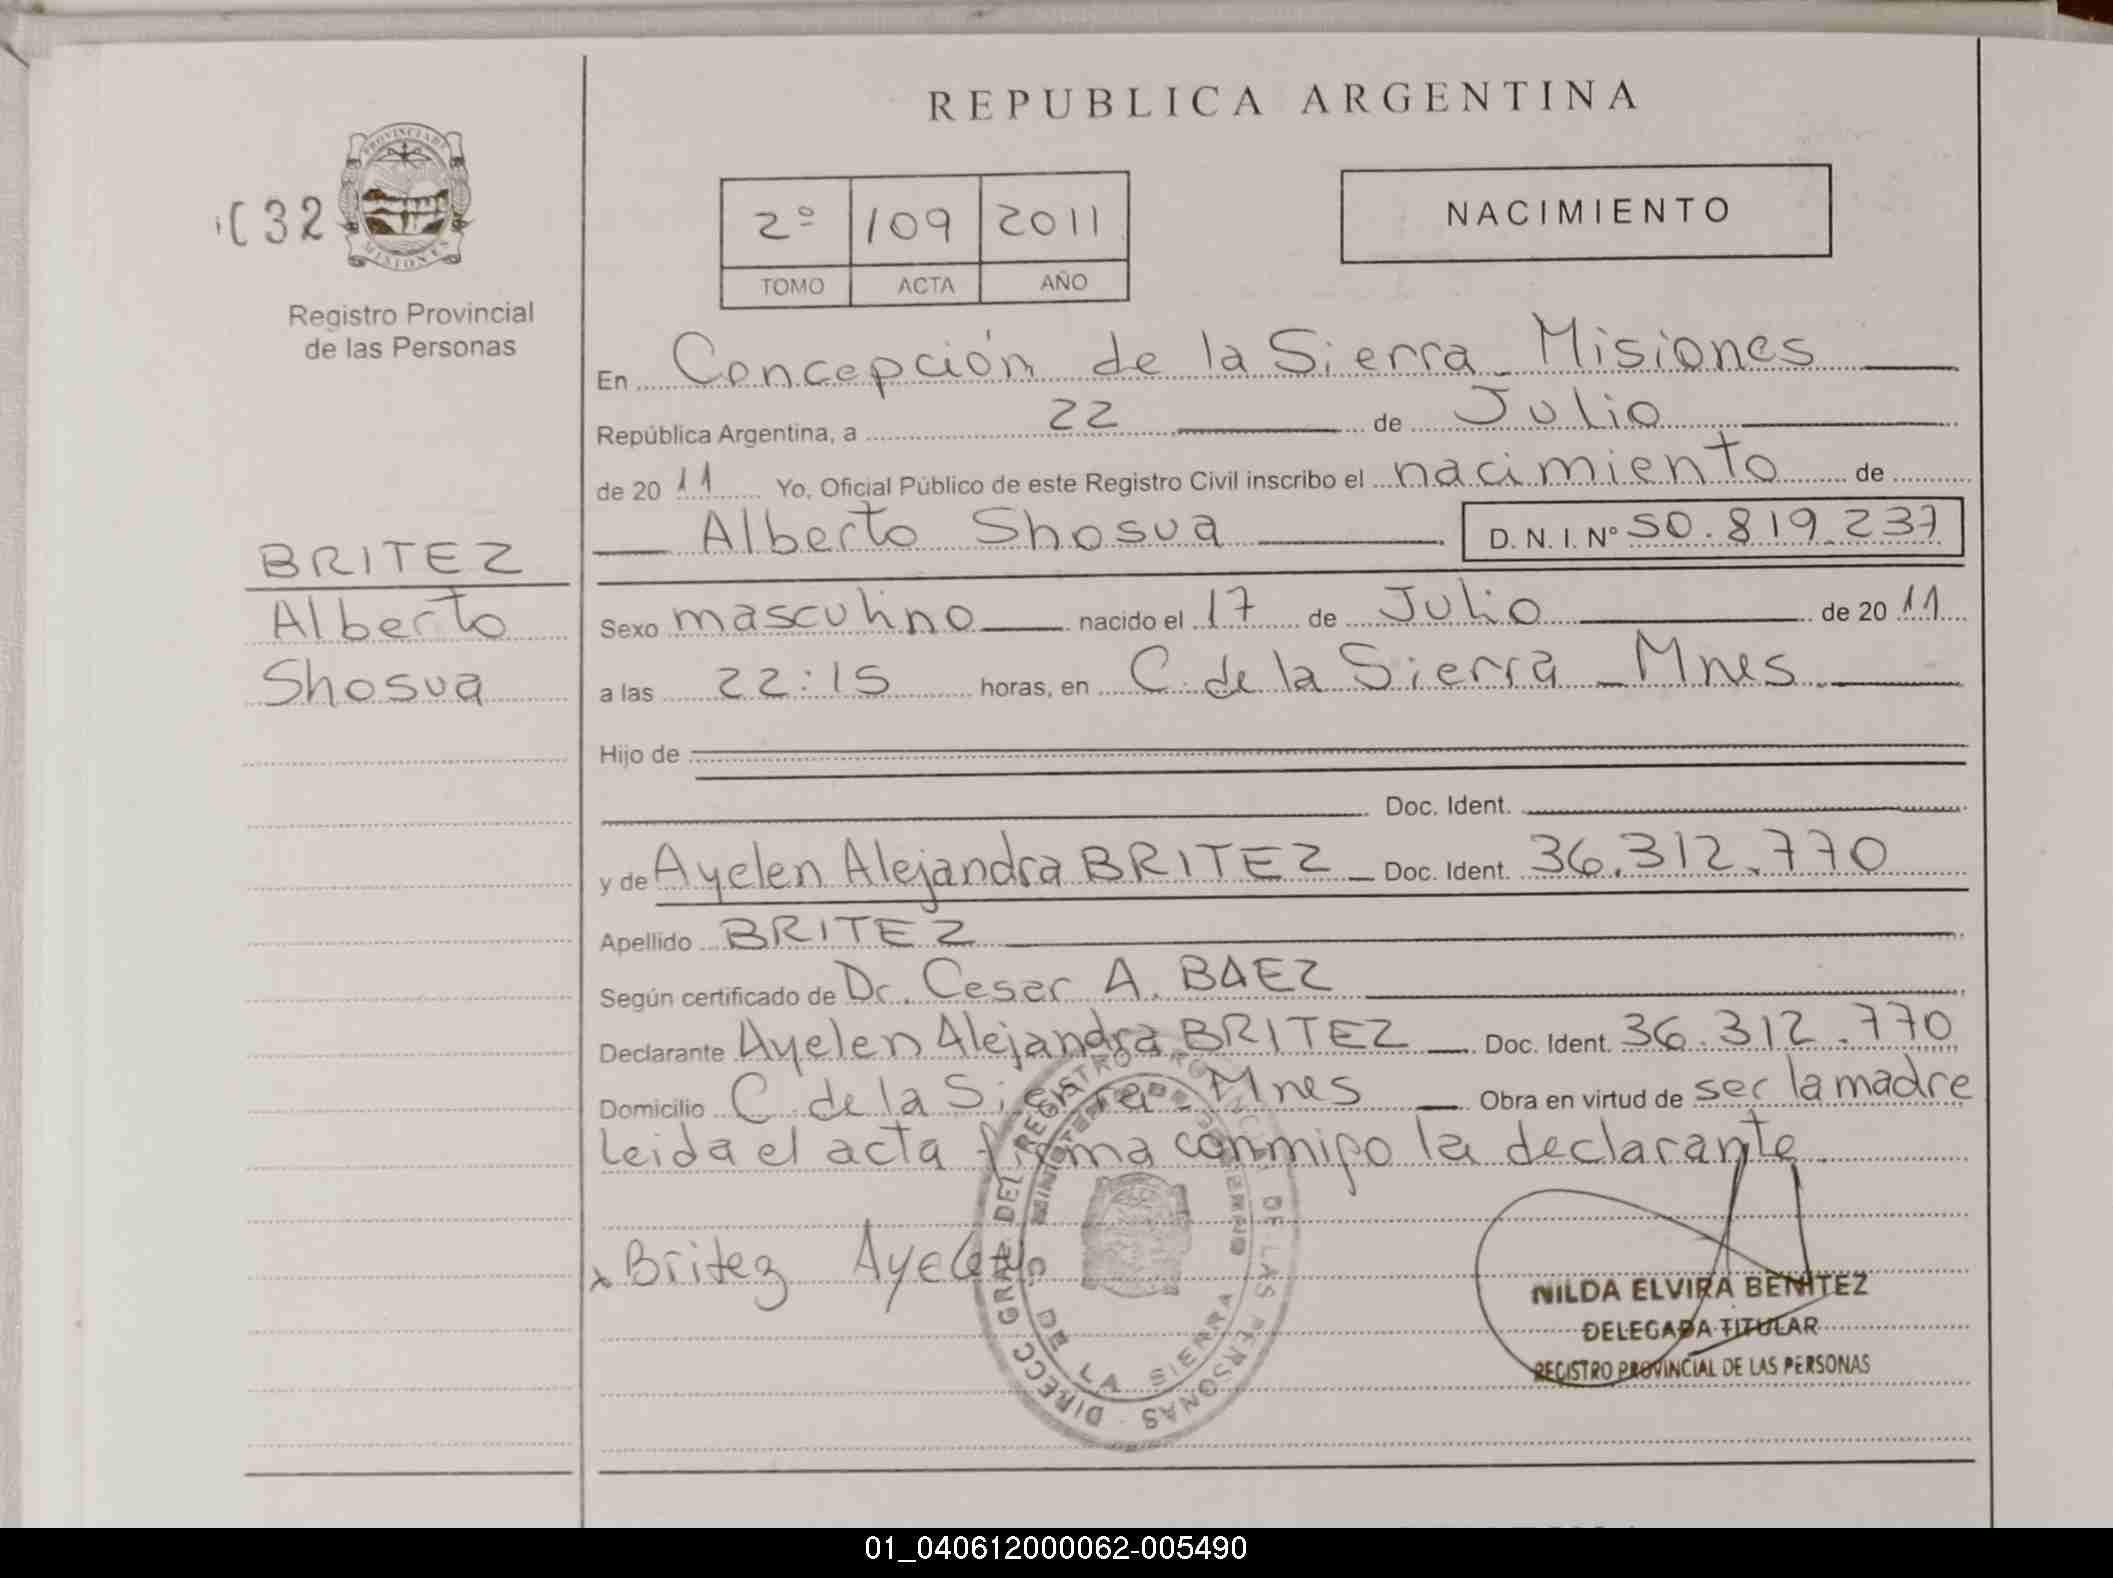 REPUBLICA ARGENTINA
PROVINCIA DE
MISIONES
32
Registro Provincial
de las Personas
2º 109 2011
TOMO ACTA AÑO
NACIMIENTO
En Concepción de la Sierra - Misiones
República Argentina, a 22 de Julio
de 2011 Yo, Oficial Público de este Registro Civil inscribo el nacimiento de
Alberto Shosua D. N. I. Nº 50.819.237
BRITEZ
Alberto
Shosua
Sexo masculino nacido el 17 de Julio de 2011
a las 22:15 horas, en C. de la Sierra - Mnes
Hijo de
Doc. Ident.
y de Ayelen Alejandra BRITEZ Doc. Ident. 36.312.770
Apellido BRITEZ
Según certificado de Dr. Cesar A. BAEZ
Declarante Ayelen Alejandra BRITEZ Doc. Ident. 36.312.770
Domicilio C. de la Sierra - Mnes Obra en virtud de ser la madre
leida el acta firma conmigo la declarante
x Britez Ayelen
DIRECC GRAL DEL REGISTRO PROVINCIAL DE LAS PERSONAS
DE LA SIERRA
NILDA ELVIRA BENITEZ
DELEGADA TITULAR
REGISTRO PROVINCIAL DE LAS PERSONAS
01_040612000062-005490